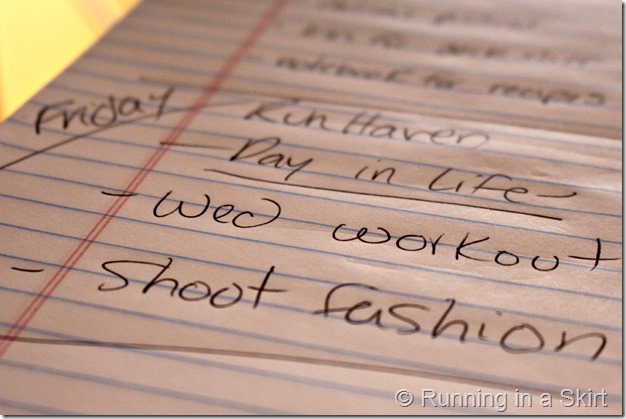 notebook for recipes
Friday RunHaven
- Day in life -
- Wed workout
- Shoot fashion
© Running in a Skirt